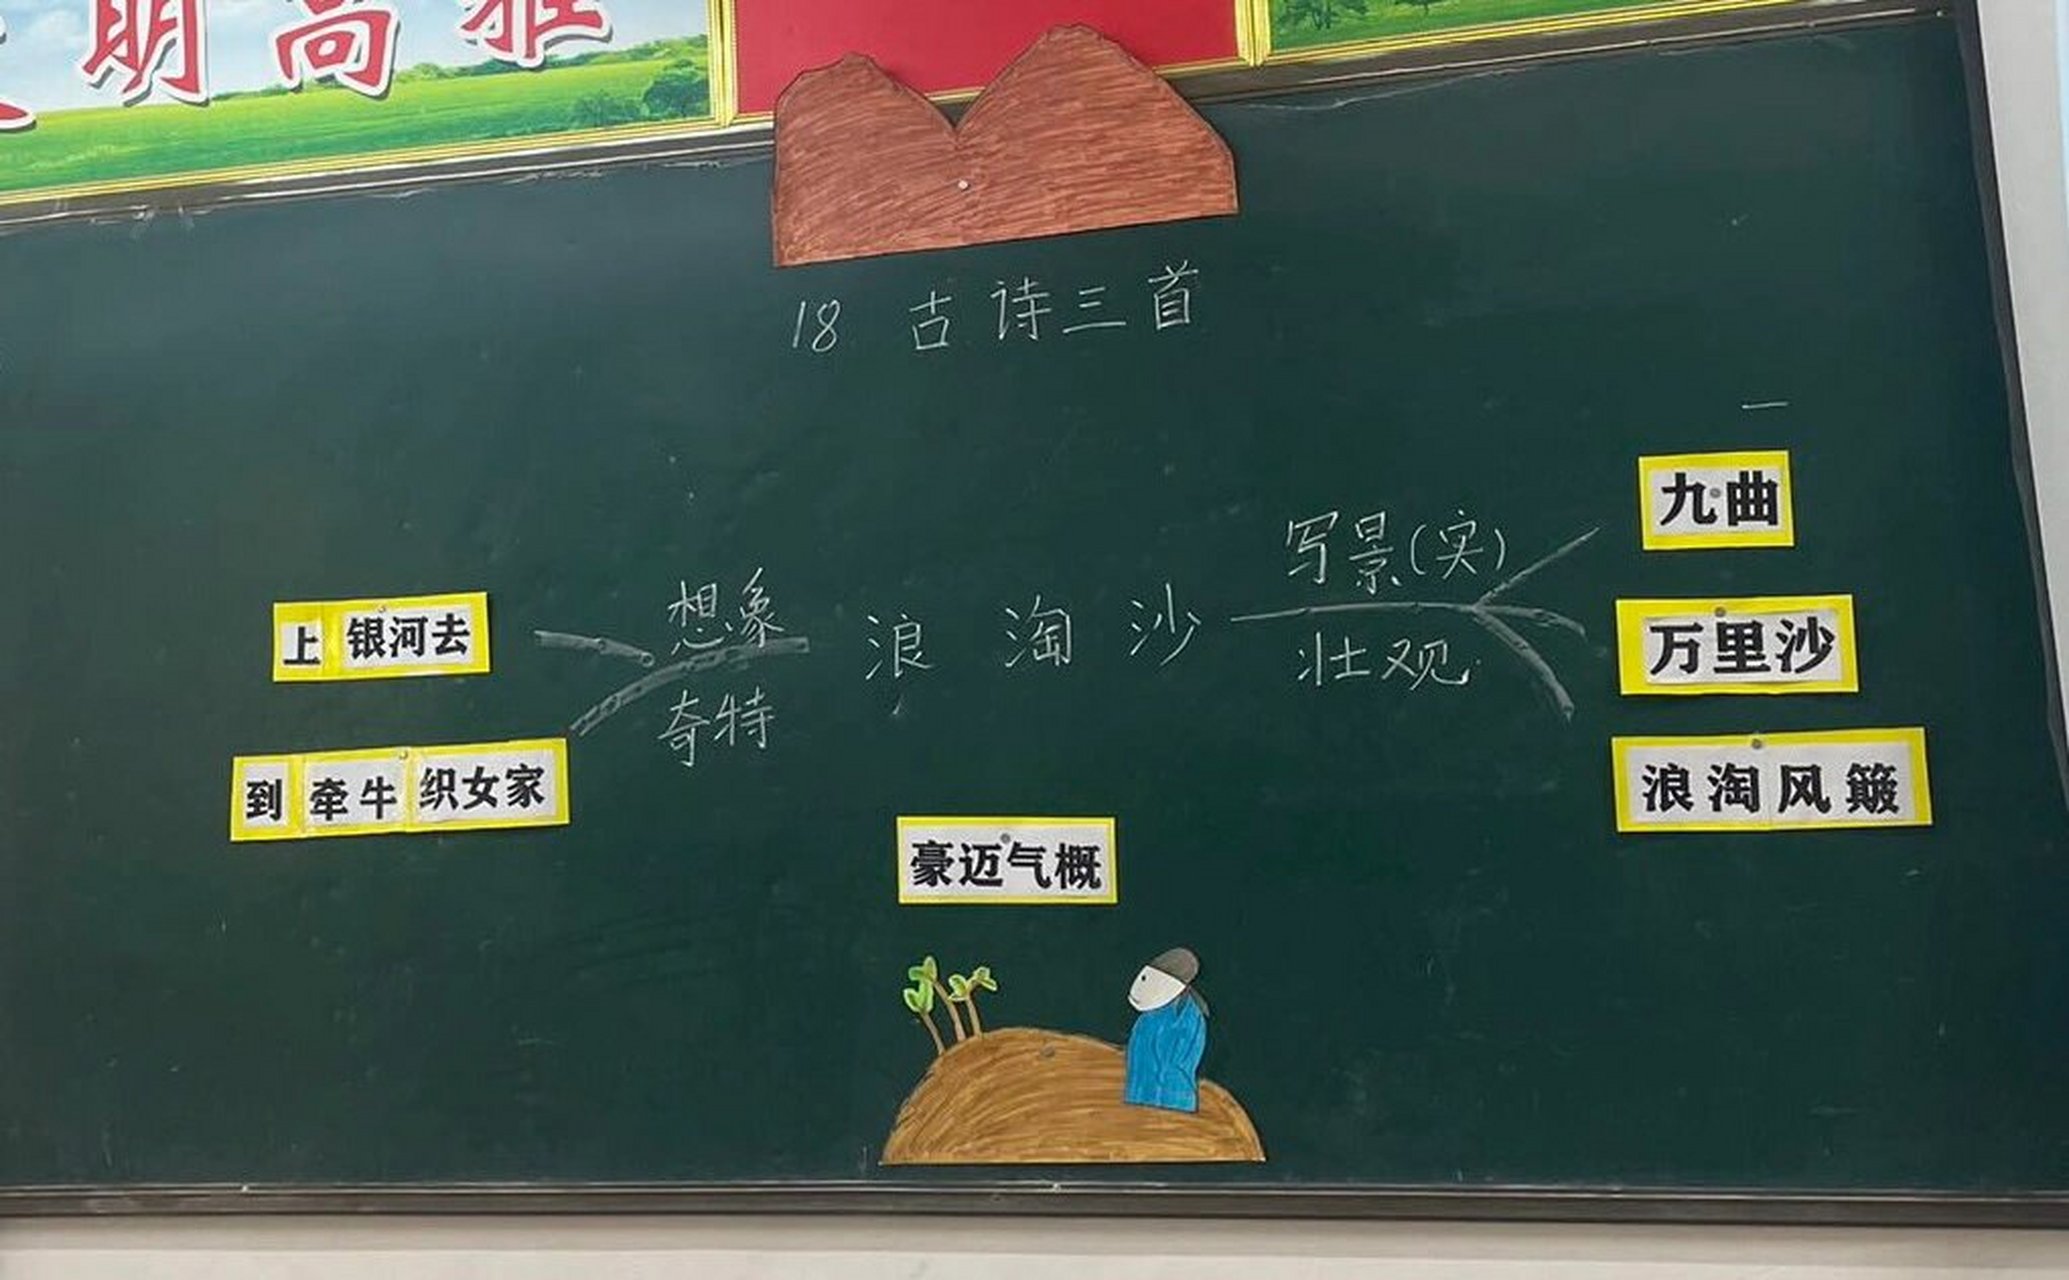 明高雅
18 古诗三首
一
九曲
写景(实)
想象
上银河去
浪 淘 沙
万里沙
壮观
奇特
到牵牛织女家
浪淘风簸
豪迈气概